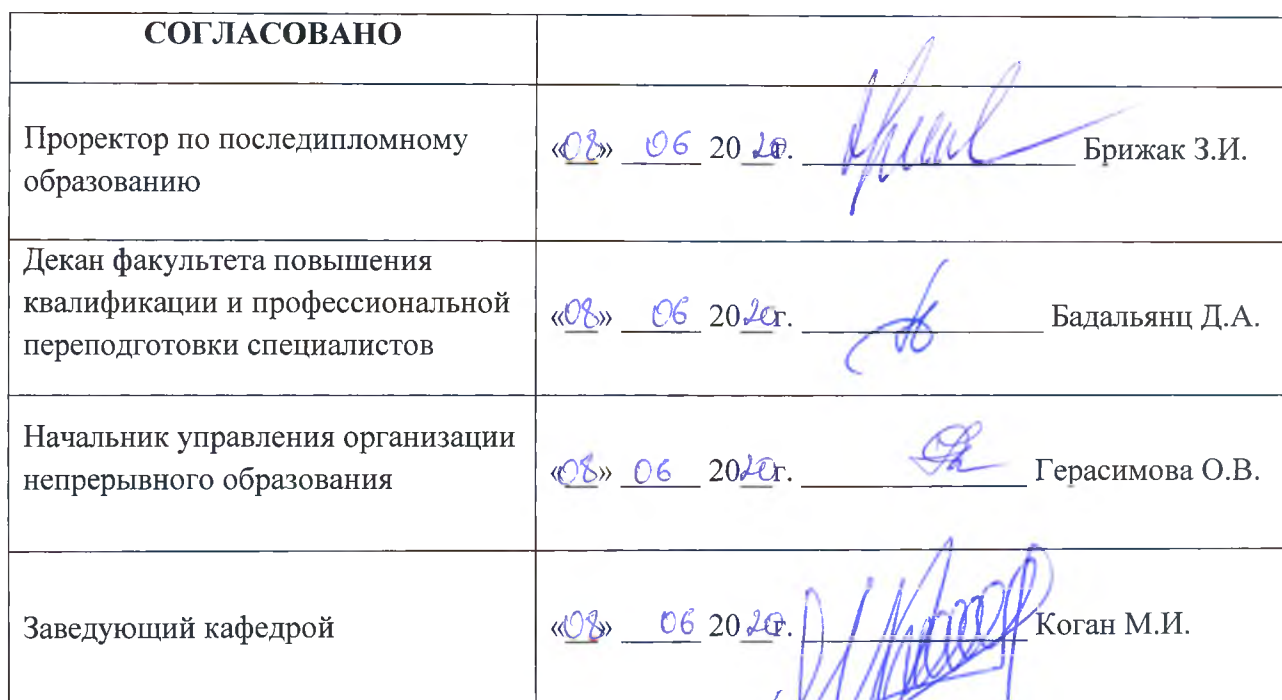 СОГЛАСОВАНО
Проректор по последипломному
образованию
«08» 06 2020г. Брижак З.И.
Декан факультета повышения
квалификации и профессиональной
переподготовки специалистов
«08» 06 2020г. Бадальянц Д.А.
Начальник управления организации
непрерывного образования
«08» 06 2020г. Герасимова О.В.
Заведующий кафедрой
«08» 06 2020г. Коган М.И.